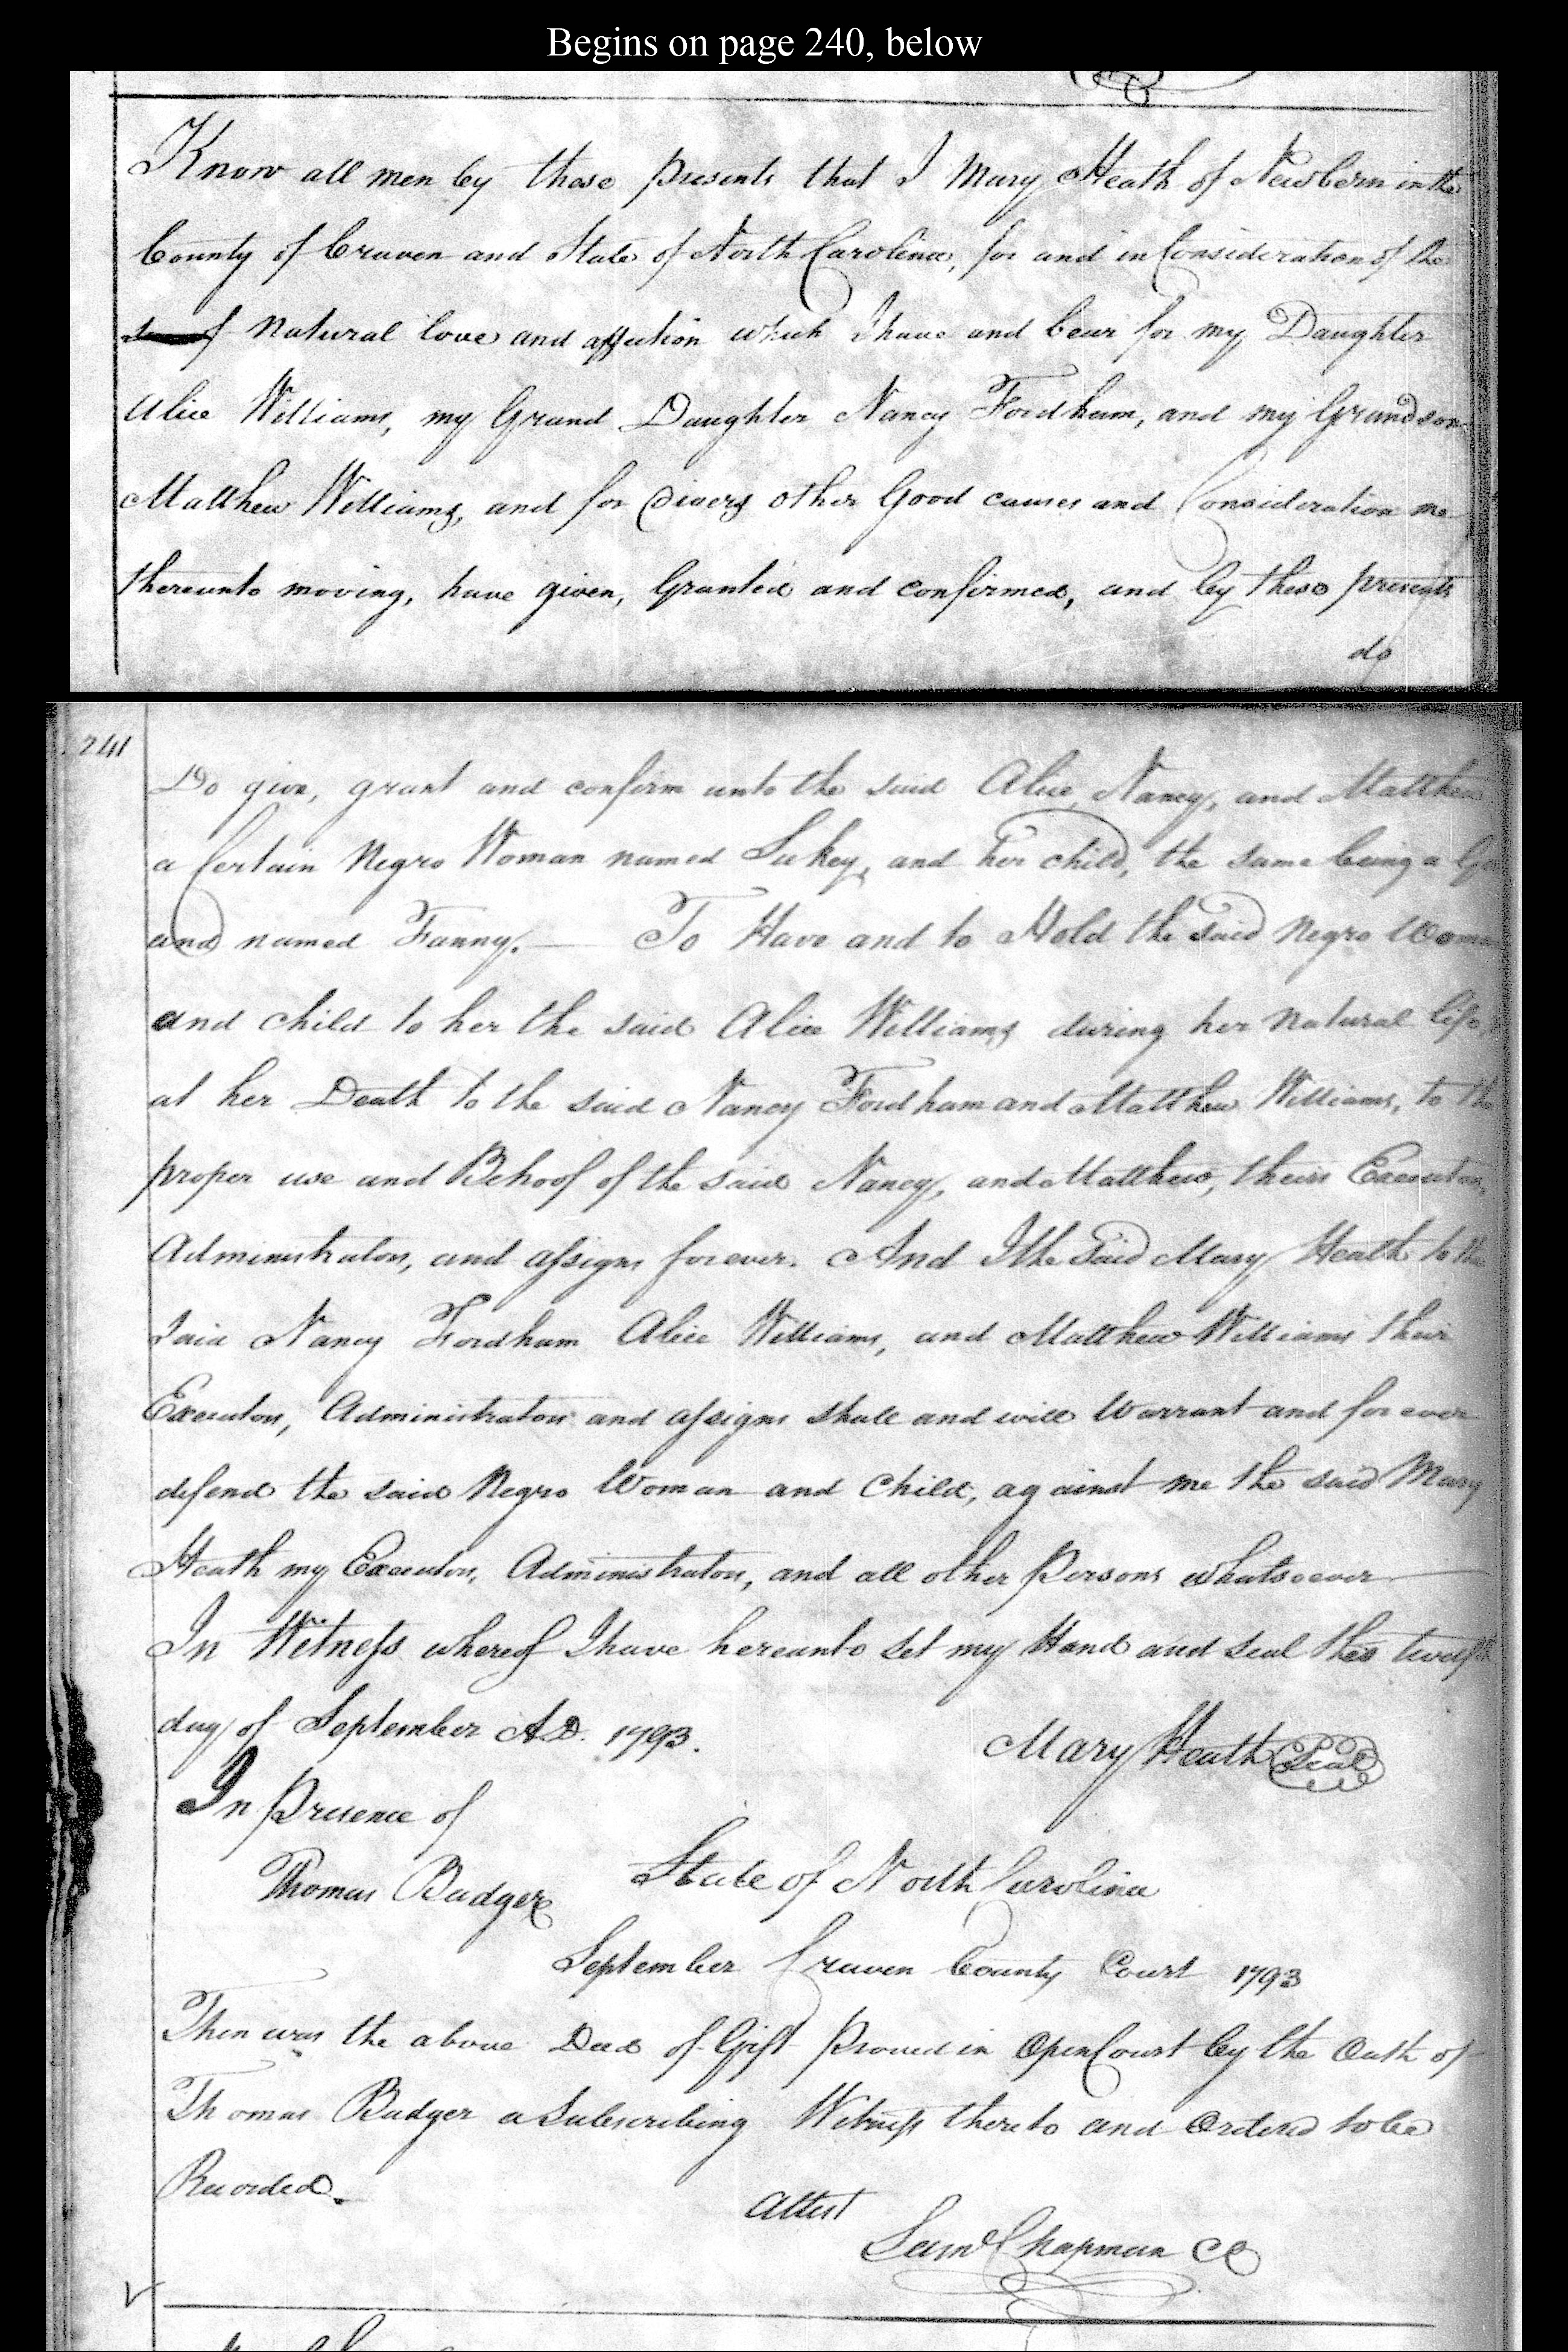 Begins on page 240, below
Know all men by these presents that I Mary Heath of Newbern in the
County of Craven and State of North Carolina, for and in Consideration of the
natural love and affection which I have and bear for my Daughter
Alice Williams, my Grand Daughter Nancy Fordham, and my Grandson
Matthew Williams, and for Divers other Good causes and Consideration me
thereunto moving, have given, Granted and confirmed, and by these presents
do
241
Do give, grant and confirm unto the said Alice, Nancy, and Matthew
a Certain Negro Woman named Sukey, and her child, the same being a
and named Fanny. — To Have and to Hold the said Negro Woman
and child to her the said Alice Williams during her Natural life,
at her Death to the said Nancy Fordham and Matthew Williams, to the
proper use and Behoof of the said Nancy, and Matthew, their Executors,
Administrators, and assigns forever. And I the said Mary Heath to the
said Nancy Fordham Alice Williams, and Matthew Williams their
Executors, Administrators and assigns shall and will Warrant and forever
defend the said Negro Woman and Child, against me the said Mary
Heath my Executors, Administrators, and all other Persons whatsoever
In Witness whereof I have hereunto set my Hand and seal this twelfth
day of September A.D. 1793. Mary Heath Seal
In Presence of
Thomas Badger State of North Carolina
September Craven County Court 1793
Then was the above Deed of Gift Proved in Open Court by the Oath of
Thomas Badger a Subscribing Witness thereto and Ordered to be
Recorded.
Attest
Saml Chapman CC